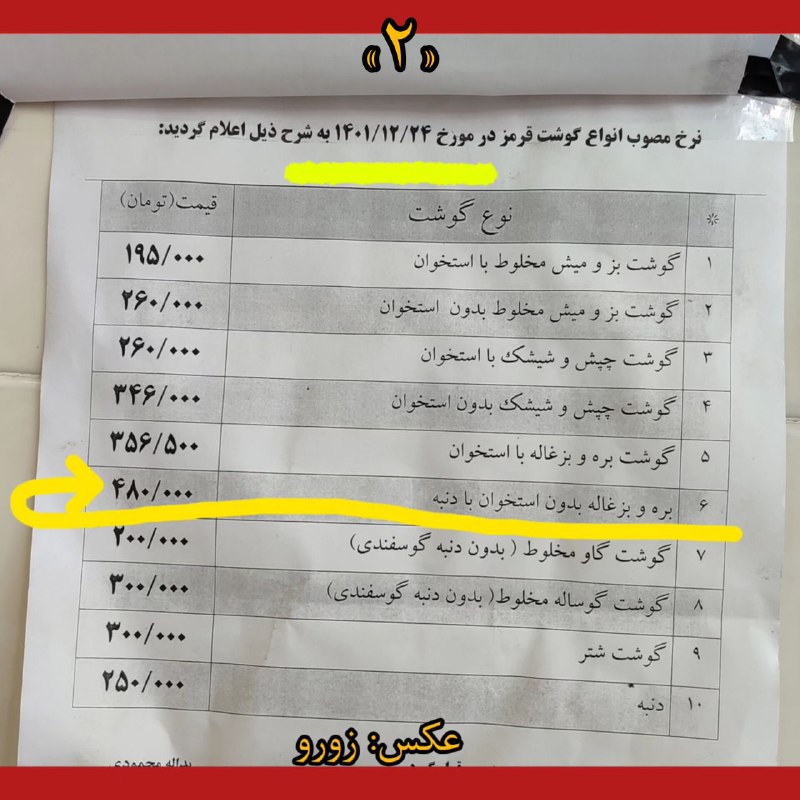 «۲»
نرخ مصوب انواع گوشت قرمز در مورخ ۱۴۰۱/۱۲/۲۴ به شرح ذیل اعلام گردید:
* نوع گوشت قیمت(تومان)
۱ گوشت بز و میش مخلوط با استخوان ۱۹۵/۰۰۰
۲ گوشت بز و میش مخلوط بدون استخوان ۲۶۰/۰۰۰
۳ گوشت چپش و شیشک با استخوان ۲۶۰/۰۰۰
۴ گوشت چپش و شیشک بدون استخوان ۳۴۶/۰۰۰
۵ گوشت بره و بزغاله با استخوان ۳۵۶/۵۰۰
۶ بره و بزغاله بدون استخوان با دنبه ۴۸۰/۰۰۰
۷ گوشت گاو مخلوط ( بدون دنبه گوسفندی) ۲۰۰/۰۰۰
۸ گوشت گوساله مخلوط( بدون دنبه گوسفندی) ۳۰۰/۰۰۰
۹ گوشت شتر ۳۰۰/۰۰۰
۱۰ دنبه ۲۵۰/۰۰۰
عکس: زورو
یداله محمودی